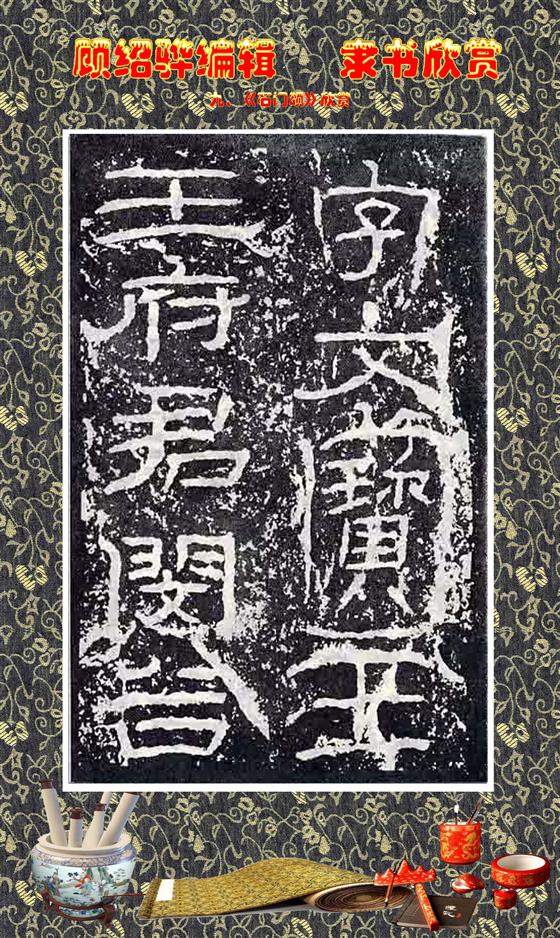 顾绍骅编辑 隶书欣赏
九、《石门颂》欣赏
字文寶主
王府君閔谷